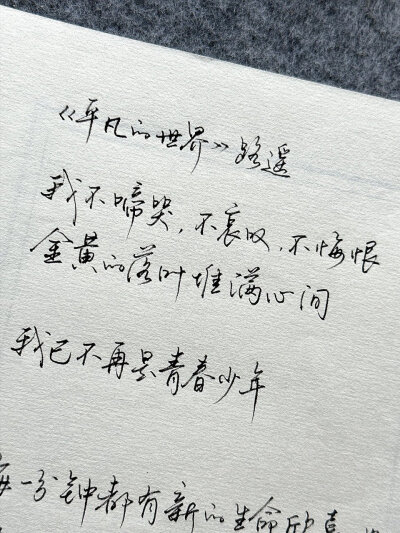 《平凡的世界》路遥
我不啼哭，不哀叹，不悔恨
金黄的落叶堆满心间
我已不再是青春少年
每一分钟都有新的生命欣喜